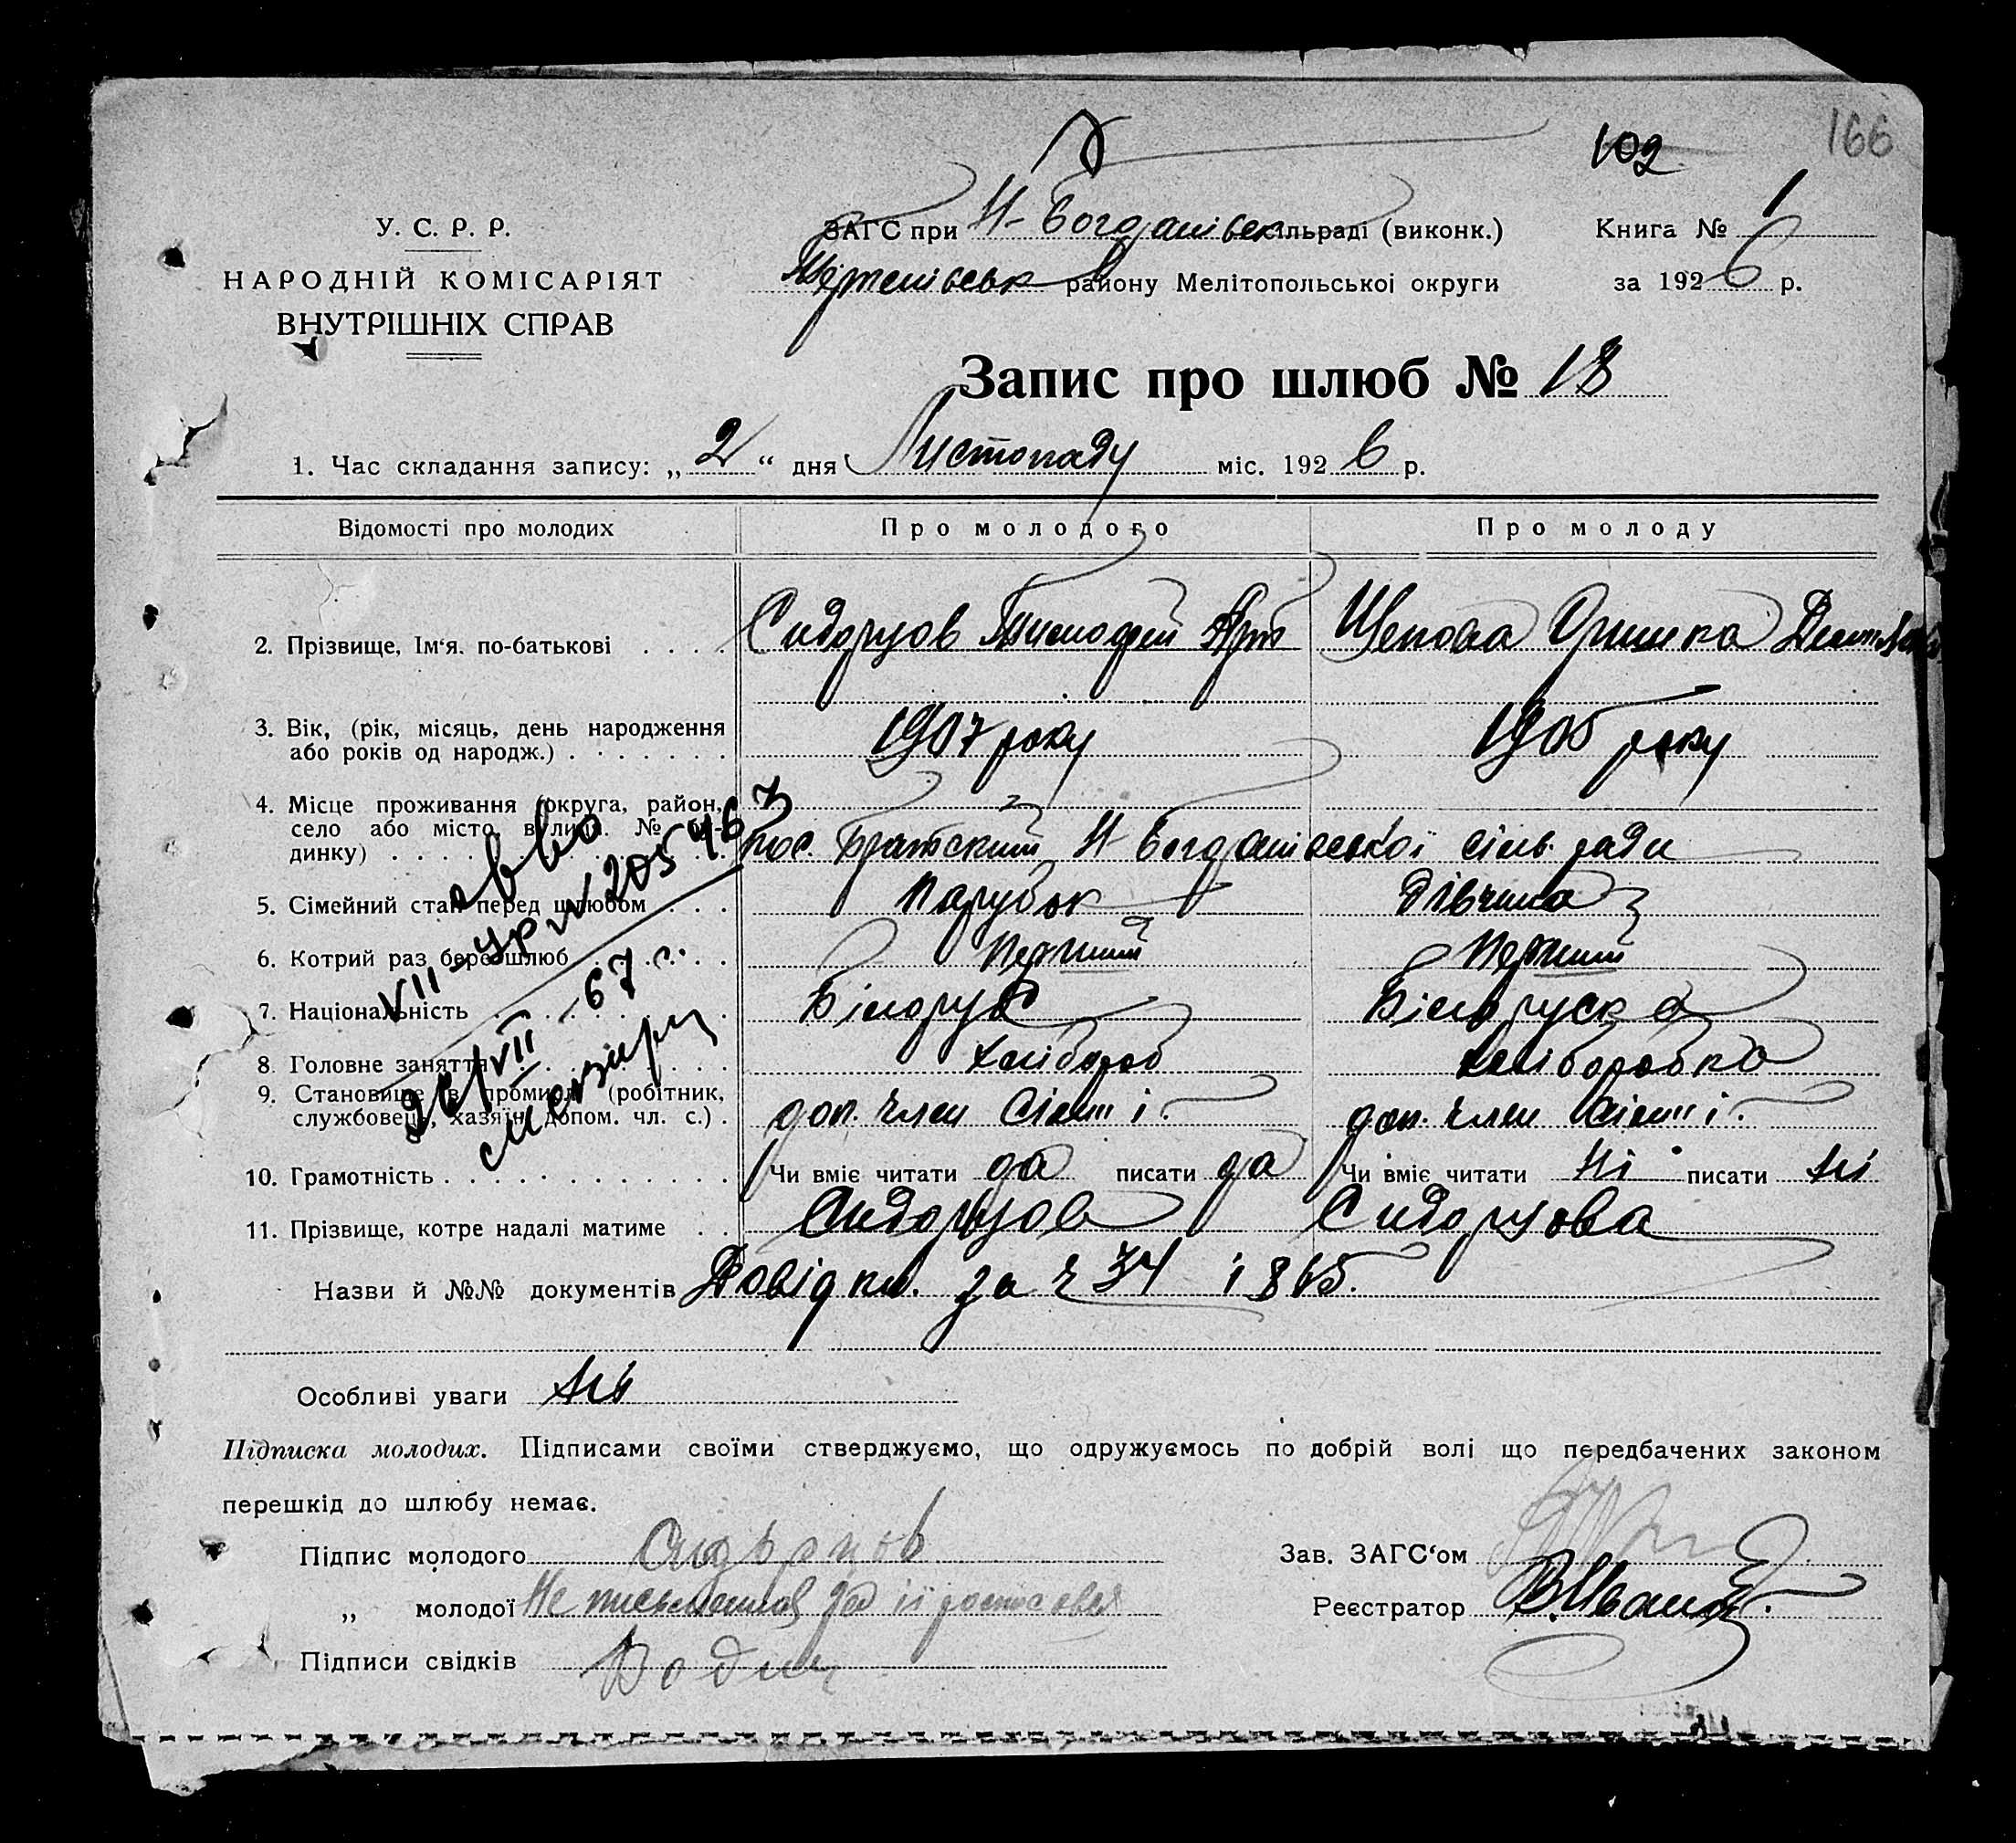 102
166
У. С. Р. Р.
НАРОДНІЙ КОМІСАРІЯТ
ВНУТРІШНІХ СПРАВ
ЗАГС при Н-Богданівськ сільраді (виконк.)
району Мелітопольської округи
Книга № 1
за 1926 р.
Запис про шлюб № 18
1. Час складання запису: „2“ дня Листопаду міс. 1926 р.
Відомості про молодих
Про молодого
Про молоду
2. Прізвище, Ім‘я. по-батькові . . . . Сидорцов Тимофей Арт Оришка
3. Вік, (рік, місяць, день народження
або років од народж.) . . . . . . . 1907 року 1905 року
4. Місце проживання (округа, район,
село або місто, вулиця. № бу-
динку) . . . . пос. Братский Н-Богданівської сіль. ради
5. Сімейний стан перед шлюбом . . . Парубок Дівчина
6. Котрий раз бере шлюб . . . . Перший Перший
7. Національність . . . . Білорус Білоруска
8. Головне заняття . . . . хлібороб хліборобка
9. Становище в промислі (робітник,
службовець, хазяїн, допом. чл. с.) . доп. член сім'ї. доп. член сім'ї.
10. Грамотність . . . . Чи вміє читати да писати да Чи вміє читати ні писати ні
11. Прізвище, котре надалі матиме . . Сидорцов Сидорцова
VII-УР № 205463
26/VII-67 г.
Назви й №№ документів Довідки за ч 34 і 865.
Особливі уваги ні
Підписка молодих. Підписами своїми стверджуємо, що одружуємось по добрій волі що передбачених законом
перешкід до шлюбу немає.
Підпис молодого Сидорцов
„ молодої Не письменна за її
Підписи свідків
Зав. ЗАГС‘ом
Реєстратор